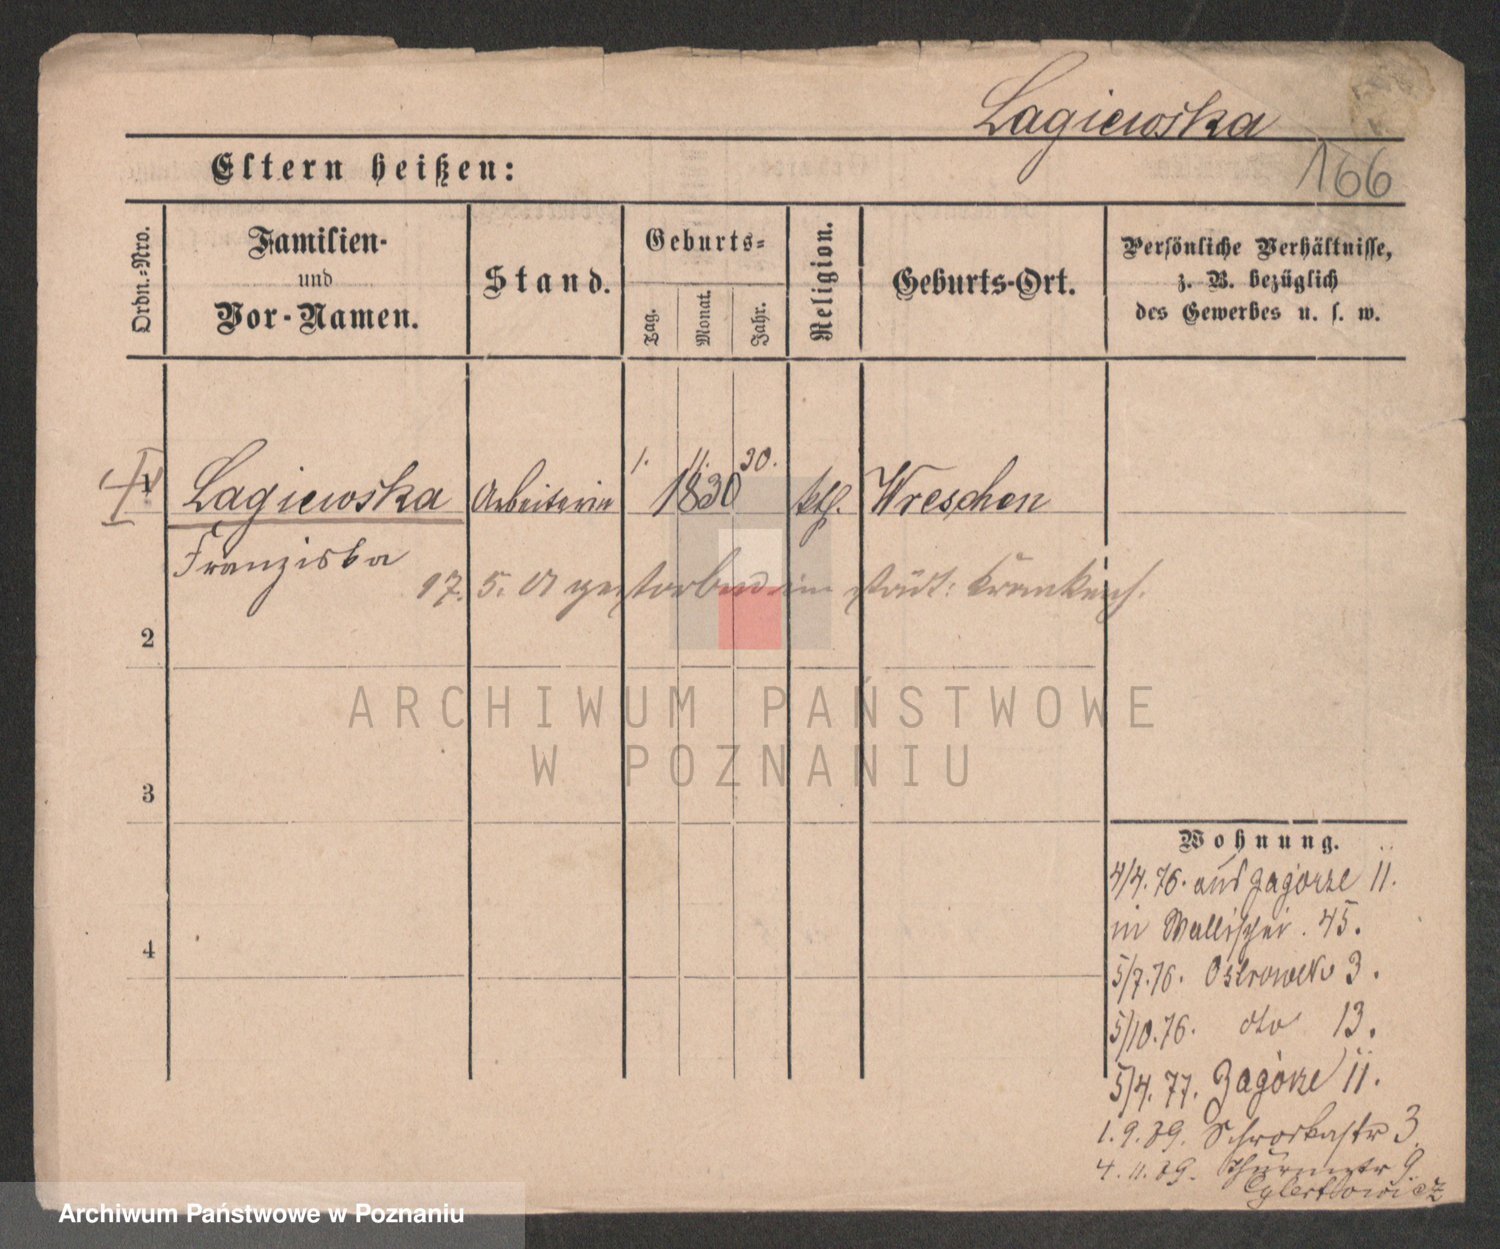 Lagiewska
166
Eltern heißen:
Ordn.-Nro.
Familien-
und
Vor-Namen.
Stand.
Geburts-
Tag.
Monat.
Jahr.
Religion.
Geburts-Ort.
Persönliche Verhältnisse,
z. B. bezüglich
des Gewerbes u. s. w.
1. 11. 30.
1 Lagiewska Arbeiterin 1830 kth. Wreschen
Franziska
17. 5. 01 gestorben im städt: Krankenh.
2
3
4
Wohnung.
4/4. 76. aus Zagórze 11.
in Wallischei. 45.
5/7. 76. Ostrowek 3.
5/10. 76. dto 13.
5/4. 77. Zagórze 11.
1. 9. 89. Schrodkastr 3.
4. 11. 89. Thürmstr 9
ARCHIWUM PAŃSTWOWE
W POZNANIU
Archiwum Państwowe w Poznaniu